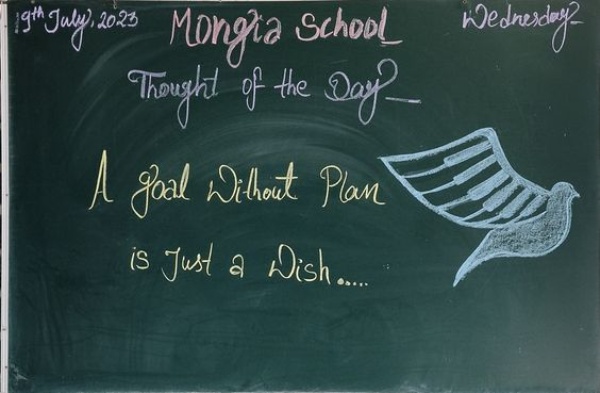 19th July, 2023
Mongia School
Wednesday
Thought of the Day
A goal Without Plan
is Just a Wish.....